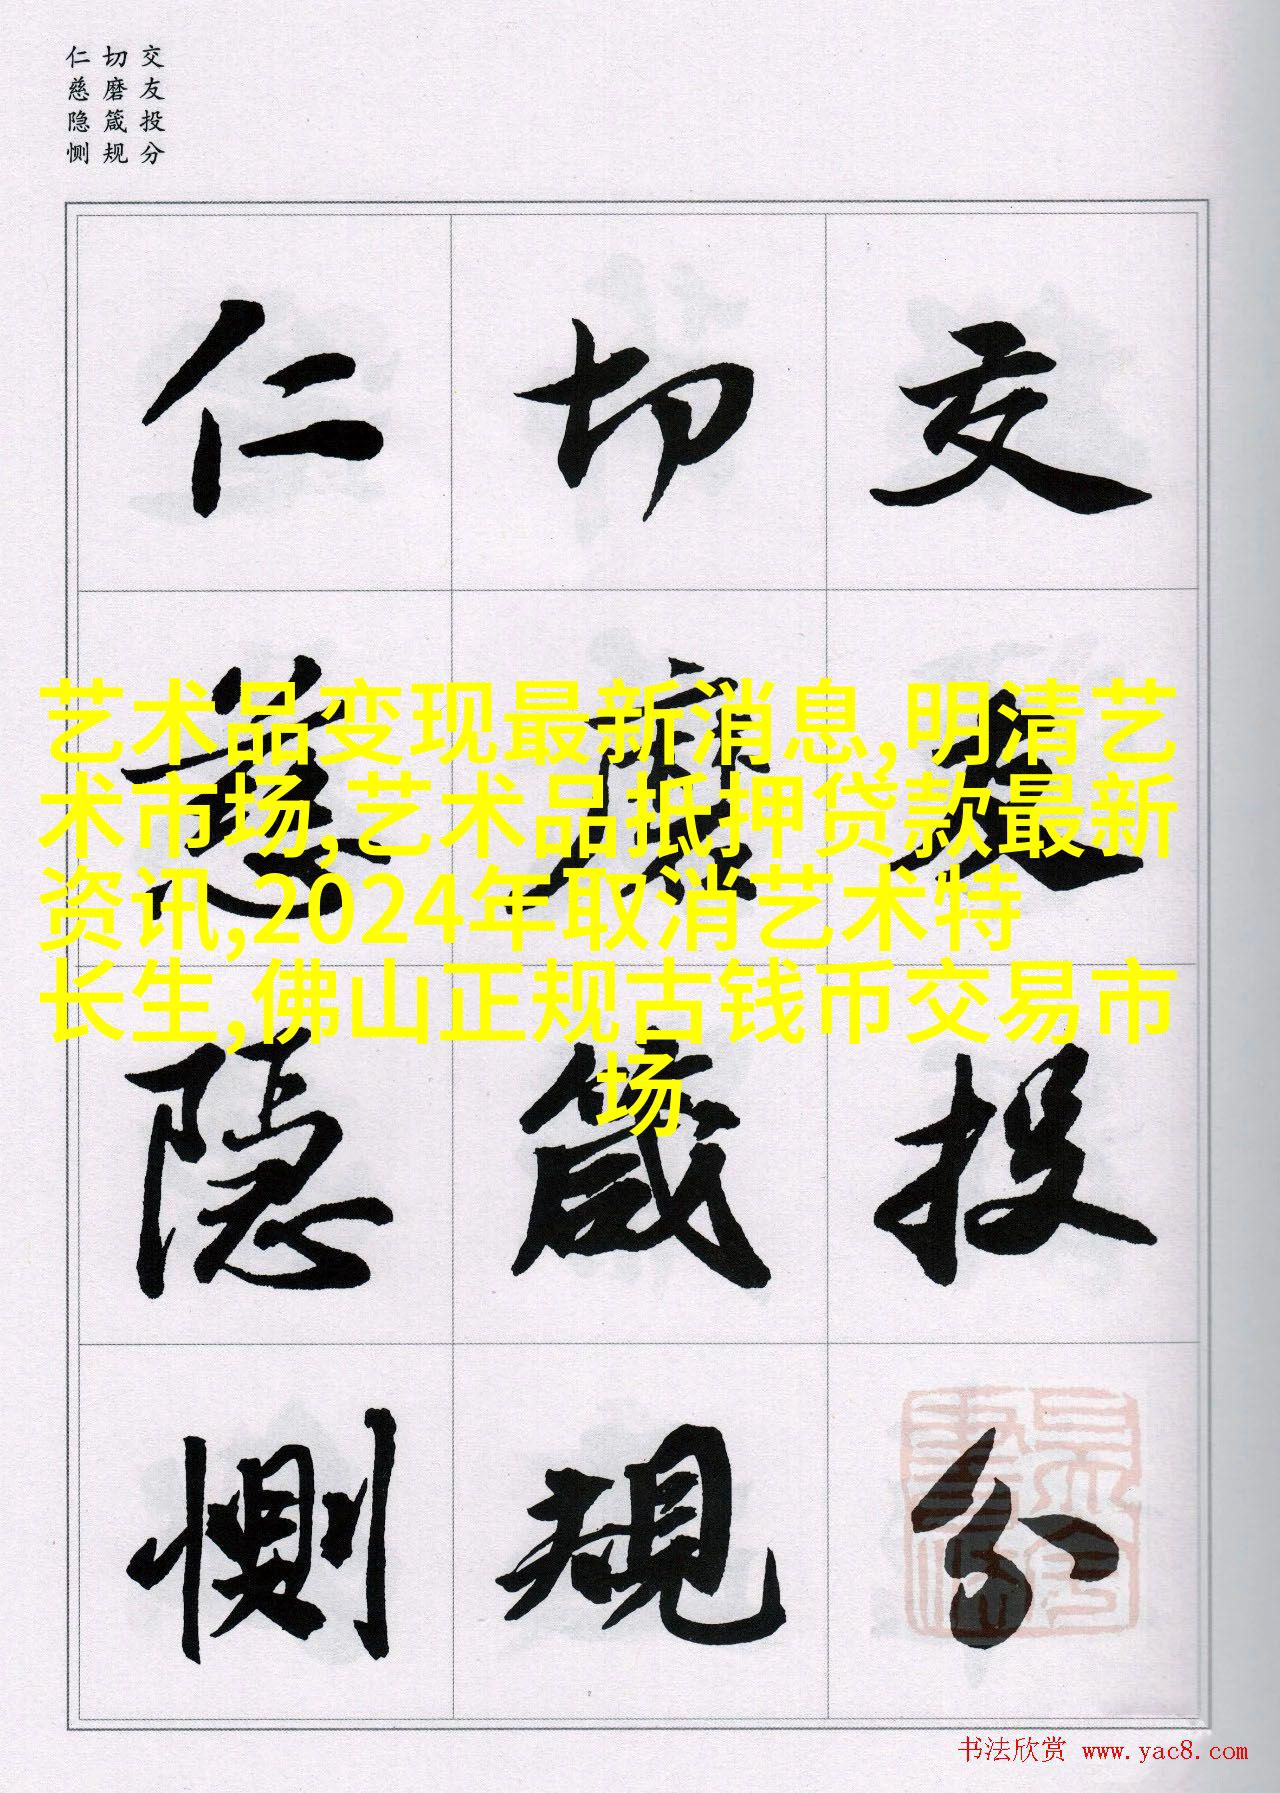 交友投分
切磨箴规
仁慈隐恻
交友投分
切磨箴規
仁慈隐恻
艺术品变现最新消息,明清艺
术市场,艺术品抵押贷款最新
资讯,2024年取消艺术特
长生,佛山正规古钱币交易市
场
书法欣赏 www.yac8.com